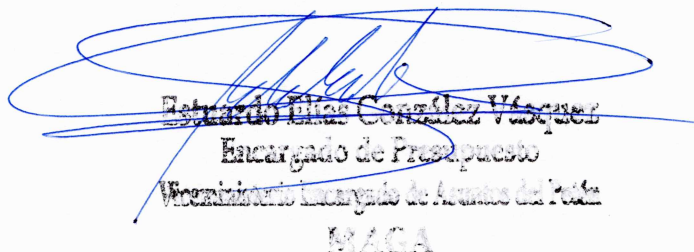 Estuardo Elías González Vásquez
Encargado de Presupuesto
Viceministerio Encargado de Asuntos del Petén
MAGA